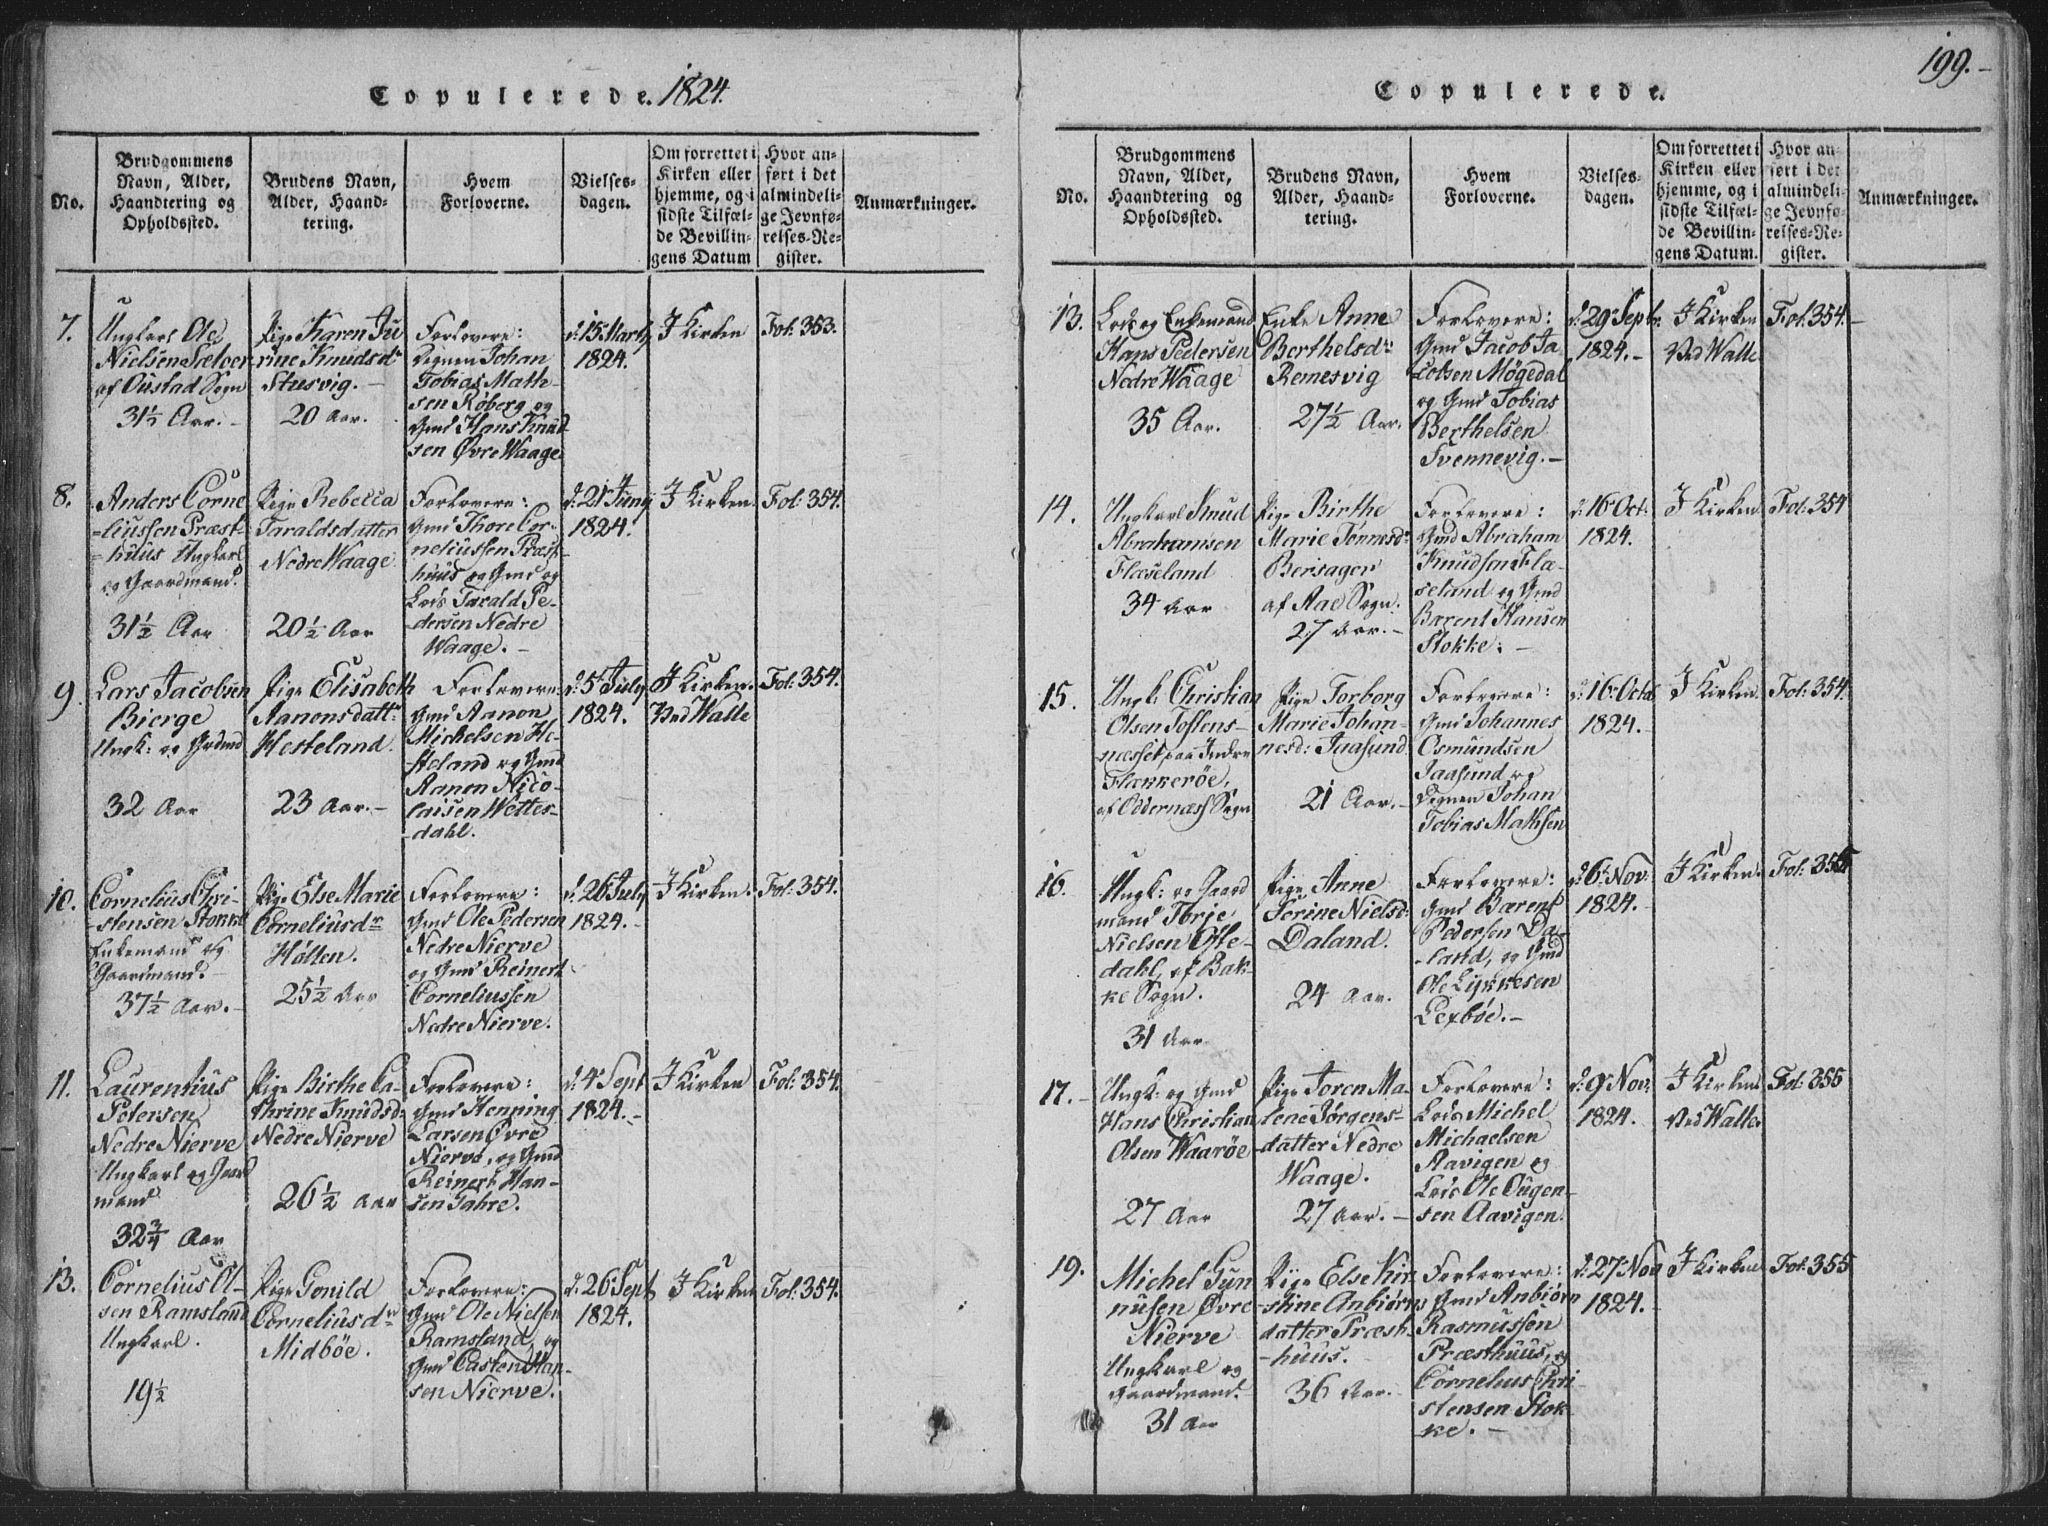 Copulerede. 1824.
No.
Brudgommens
Navn, Alder,
Haandtering og
Opholdssted.
Brudens Navn,
Alder, Haand-
tering.
Hvem
Forloverne.
Vielses-
dagen.
Om forrettet i
Kirken eller
hjemme, og i
sidste Tilfæl-
de Bevillin-
gens Datum
Hvor an-
ført i det
almindeli-
ge Jevnfø-
relses-Re-
gister.
Anmærkninger.
7.
Ungkarl Ole
Nielsen Sælver
af Oustad Sogn
31½ Aar.-
Pige Karen Ju
rine Knudsdr
Stusvig.-
20 Aar.
Forlovere:
Degnen Johan
Tobias Math-
sen Røberg og
Gmd Hans Knud
sen Øvre Waage
d: 15 Marty
1824.
I Kirken
Fol: 353.
8.
Anders Corne
-liussen Præst-
-huus Ungkarl
og Gaardmand.
31½ Aar
Pige Rebecca
Taraldsdatter
Nedre Waage
20½ Aar
Forlovere:
Gmd Thore Cor-
neliussen Præst
huus og Gmd og
Lods Tarald Pe-
dersen Nedre
Waage.-
d: 21 Juny
1824.
I Kirken.
Fol: 354.
9.
Lars Jacobsen
Bierge
Ungk: og Grdmd
32 Aar
Pige Elisabeth
Aanonsdattr
Hesteland.
23 Aar.-
Forlovere:
Gmd Aanon
Michelsen He-
-steland og Gmd
Aanon Nico-
laisen Wettes-
-dahl.
d: 5 July
1824.
I Kirken.
Ved Walle
Fol: 354.
10.
Cornelius Chri-
-stensen Stokke
Enkemand og
Gaardmand.-
37½ Aar.-
Pige Else Marie
Corneliusdr
Holten.
25½ Aar
Forlovere:
Gmd Ole Pedersen
Nedre Nierve
og Gmd Reinert
Corneliussen
Nedre Nierve.
d: 26 July
1824.-
I Kirken.
Fol: 354.
11.
Laurentius
Petersen
Nedre Nierve
Ungkarl og Gaard
mand
32¾ Aar
Pige Birthe Ca-
thrine Knudsd:
Nedre Nierve
26½ Aar
Forlovere:
Gmd Henning
Larsen Øvre
Nierve, og Gmd
Reinert Han-
sen Jahre.
d: 4 Sept
1824.-
I Kirken
Fol: 354.
13.
Cornelius Ol-
sen Ramsland
Ungkarl.
19½
Pige Gonild
Corneliusdr
Midbøe.
Forlovere:
Gmd Ole Nielsen
Ramsland, og
Gmd Casten Han-
sen Nierve.
d: 26 Sept
1824.
I Kirken
Fol: 354.
199.-
Copulerede.
No.
Brudgommens
Navn, Alder,
Haandtering og
Opholdssted.
Brudens Navn,
Alder, Haand-
tering.
Hvem
Forloverne.
Vielses-
dagen.
Om forrettet i
Kirken eller
hjemme, og i
sidste Tilfæl-
de Bevillin-
gens Datum.
Hvor an-
ført i det
almindeli-
ge Jevnfø-
relses-Re-
gister.
Anmærkninger.
13.
Lods og Enkemand
Hans Pedersen
Nedre Waage
35 Aar.
Enke Anne
Berthelsdr
Remesvig
27½ Aar.
Forlovere:
Gmd Jacob Ja-
cobsen Møgedal
og Gmd Tobias
Berthelsen
Svennevig.-
d: 29 Septr.
1824.-
I Kirken
Ved Walle
Fol: 354.-
14.
Ungkarl Knud
Abrahamsen
Flæseland
34 Aar
Pige Birthe
Marie Tønnesdr
Berisager
af Aae Sogn.
27 Aar.-
Forlovere:
Gmd Abraham
Knudsen Flæ-
seland og Gmd
Bærent Hansen
Stokke:-
d: 16 Oct:
1824.
I Kirken
Fol: 354
15.
Ungk: Christian
Olsen Tostens-
næsset, paa Indre
Flækkerøe,
af Oddernæss Sogn
Pige Torborg
Marie Johan-
nesd: Jaasund
21 Aar.-
Forlovere:
Gmd Johannes
Osmundsen
Jaasund og
Degnen Johan
Tobias Mathsen
d: 16 Octbr
1824.-
I Kirken
Fol: 354.
16.
Ungk: og Gaard
mand Torje
Nielsen Ofte-
dahl, af Bak-
ke Sogn.
31 Aar
Pige Anne
Serine Nielsd:
Daland.
24 Aar.
Forlovere:
Gmd Bærent
Pedersen Da-
-land, og Gmd
Ole Lykkesen
Lexbøe.-
d: 6 Nov:
1824.-
I Kirken.
Fol: 355
17.-
Ungk: og Gmd
Hans Christian
Olsen Waarøe
27 Aar
Pige Soren Ma-
lene Jørgens-
datter Nedre
Waage.
27 Aar.-
Forlovere:
Lods Michel
Michaelsen
Aavigen og
Lods Ole Ougen-
sen Aavigen.
d: 9 Nov:
1824.-
I Kirken
Ved Walle.
Fol: 355
19.
Michel Gun
nusen Øvre
Nierve
Ungkarl og
Gaardmand.
31 Aar
Pige Else Kir
stine Anbiørns
datter Præst-
-huus.
36 Aar.
Forlovere:
Gmd Anbiørn
Rasmussen
Præsthuus, og
Cornelius Chri-
stensen Stok-
ke.-
d: 27 Nov
1824.
I Kirken
Fol: 355